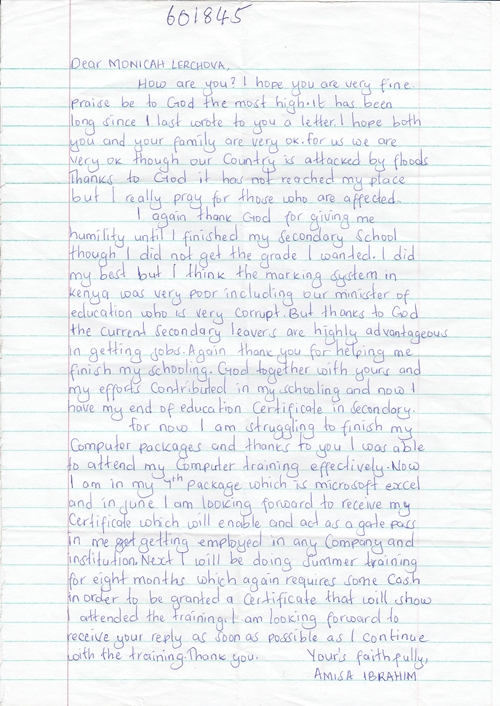 601845
Dear MONICAH LERCHOVA,
How are you? I hope you are very fine
praise be to God the most high. It has been
long since I last wrote to you a letter. I hope both
you and your family are very ok. For us we are
very ok though our Country is attacked by floods
Thanks to God it has not reached my place
but I really pray for those who are affected.
I again thank God for giving me
humility until I finished my secondary School
though I did not get the grade I wanted. I did
my best but I think the marking system in
kenya was very poor including our minister of
education who is very corrupt. But thanks to God
the current secondary leavers are highly advantageous
in getting jobs. Again thank you for helping me
finish my schooling. God together with yours and
my efforts Contributed in my schooling and now I
have my end of education Certificate in secondary.
for now I am struggling to finish my
Computer packages and thanks to you I was able
to attend my Computer training effectively. Now
I am in my 4th package which is microsoft excel
and in june I am looking forward to receive my
Certificate which will enable and act as a gate pass
in me getting employed in any Company and
institution. Next I will be doing summer training
for eight months which again requires some Cash
in order to be granted a Certificate that will show
I attended the training. I am looking forward to
receive your reply as soon as possible as I continue
with the training. Thank you. Your's faithfully,
AMISA IBRAHIM